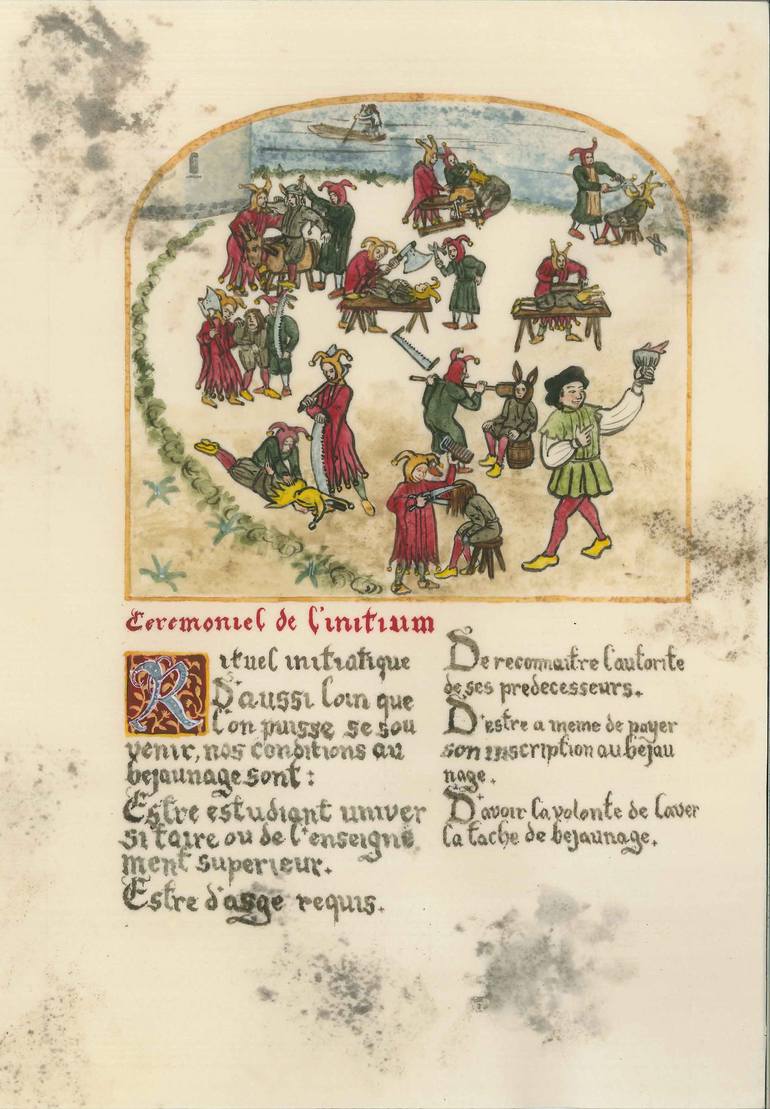 Ceremoniel de l'initium
Rituel initiatique
D'aussi loin que
l'on puisse se sou
venir, nos conditions au
bejaunage sont :
Estre estudiant univer
sitaire ou de l'enseigne
ment superieur.
Estre d'asge requis.
De reconnaitre l'autorite
de ses predecesseurs.
D'estre a meme de payer
son inscription au bejau
nage.
D'avoir la volonte de laver
la tache de bejaunage.